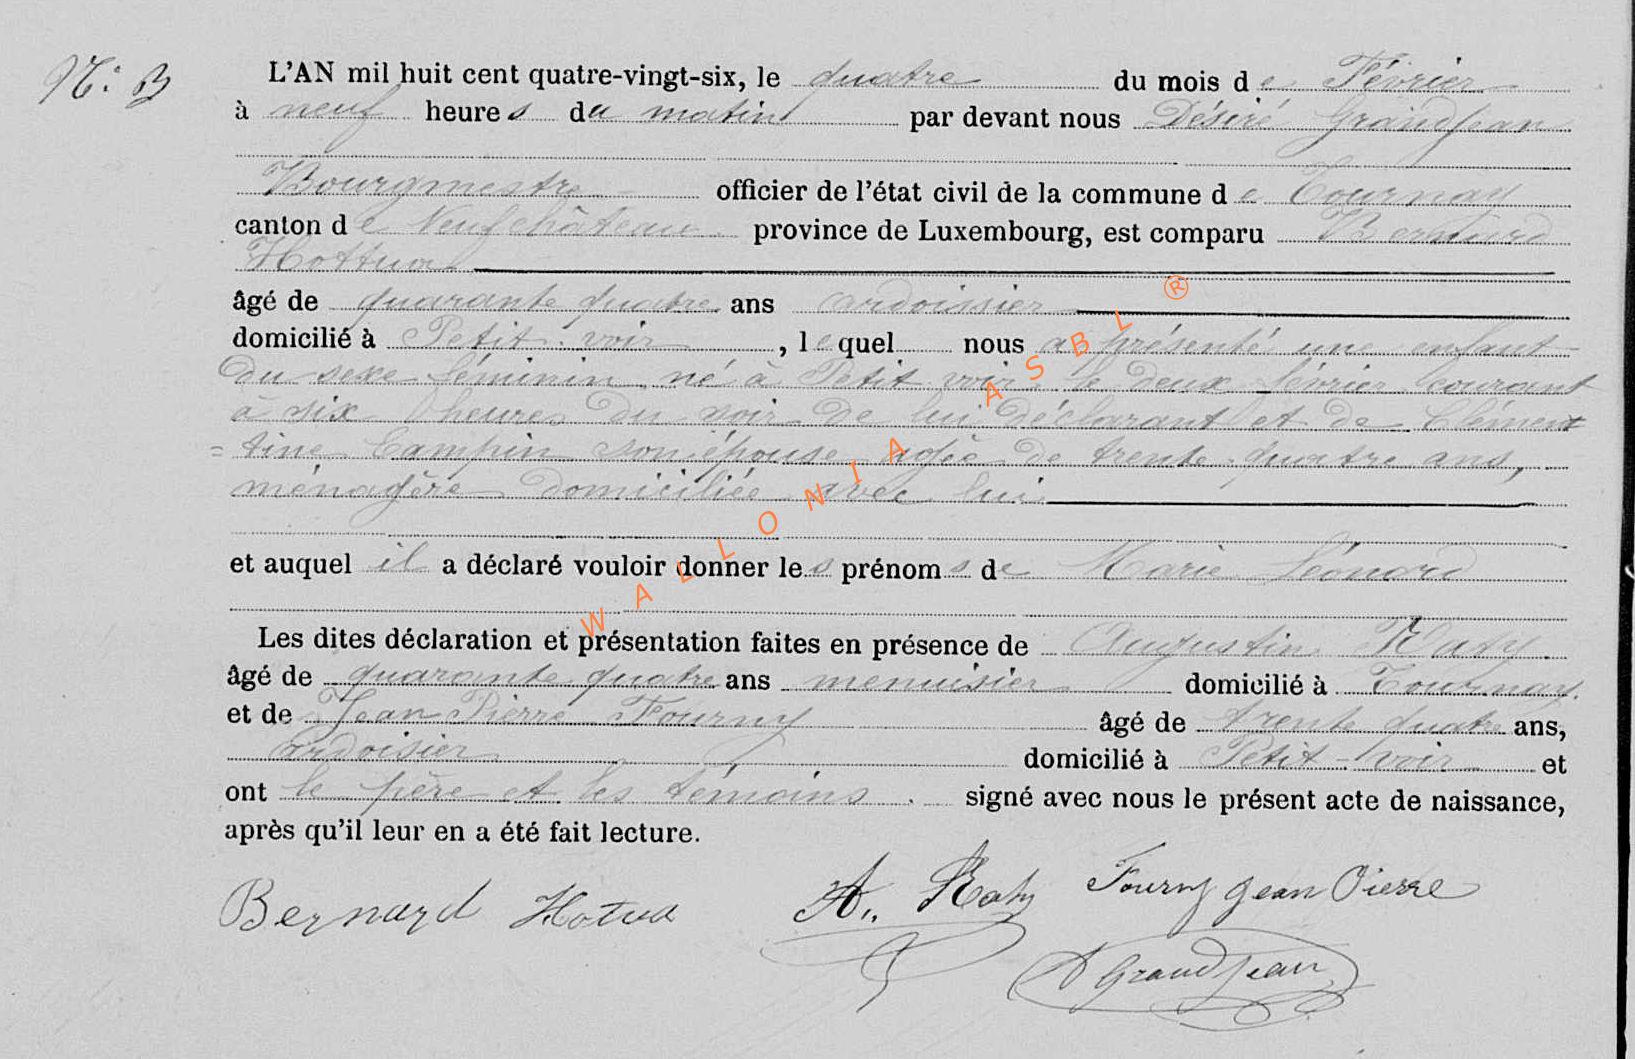 N: 3
L'AN mil huit cent quatre-vingt-six, le quatre du mois de Février
à neuf heures du matin par devant nous Désiré Grandjean
Bourgmestre officier de l'état civil de la commune de Tournay
canton de Neufchâteau province de Luxembourg, est comparu Bernard
Hottua
âgé de quarante quatre ans ardoisier
domicilié à Petit-voir, lequel nous a présenté une enfant
du sexe féminin né à Petit voir le deux février courant
à six heures du soir de lui déclarant et de Clémen
= tine Campin son épouse agée de trente-quatre ans,
ménagère domiciliée avec lui
et auquel il a déclaré vouloir donner les prénoms de Marie Léonard
Les dites déclaration et présentation faites en présence de Augustin
âgé de quarante quatre ans menuisier domicilié à Tournay.
et de Jean Pierre Fourny âgé de trente quatre ans,
ardoisier domicilié à Petit-voir et
ont le père et les témoins signé avec nous le présent acte de naissance,
après qu'il leur en a été fait lecture.
Bernard Hotua A. Fourny Jean Pierre
D Grandjean
WALLONIA ASBL ®